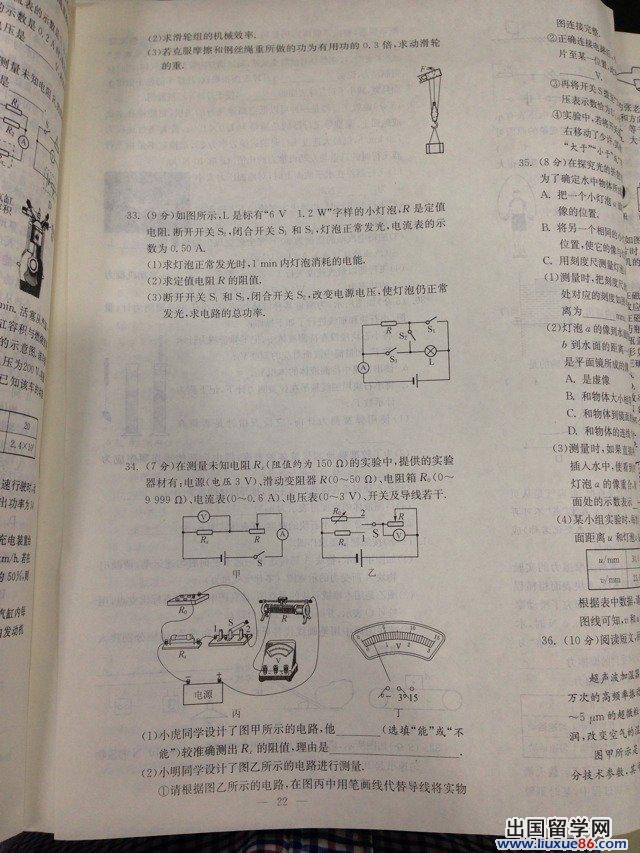 (2)求滑轮组的机械效率.
(3)若克服摩擦和钢丝绳重所做的功为有用功的 0.3 倍,求动滑轮
的重.
F
33. (9 分)如图所示,L 是标有“6 V 1.2 W”字样的小灯泡,R 是定值
电阻.断开开关 S₂,闭合开关 S₁ 和 S₃,灯泡正常发光,电流表的示
数为 0.50 A.
(1)求灯泡正常发光时,1 min 内灯泡消耗的电能.
(2)求定值电阻 R 的阻值.
(3)断开开关 S₁ 和 S₃,闭合开关 S₂,改变电源电压,使灯泡仍正常
发光,求电路的总功率.
R
S₁
S₂
S₃
L
A
34. (7 分)在测量未知电阻 Rₓ(阻值约为 150 Ω)的实验中,提供的实验
器材有:电源(电压 3 V)、滑动变阻器 R(0～50 Ω)、电阻箱 R₀(0～
9 999 Ω)、电流表(0～0.6 A)、电压表(0～3 V)、开关及导线若干.
V
Rₓ
R
A
S
甲
R₀
2
R
S
Rₓ
1
V
乙
R₀
Rₓ
S
1
2
R
V
电源
丙
V
3
15
丁
(1)小虎同学设计了图甲所示的电路,他______(选填“能”或“不
能”)较准确测出 Rₓ 的阻值,理由是______.
(2)小明同学设计了图乙所示的电路进行测量.
①请根据图乙所示的电路,在图丙中用笔画线代替导线将实物
— 22 —
图连接完整.
②正确连接电路
片至某一位置
V.
③再将开关 S
压表示数
④实验中,若将
右移动了少许
“大于”“小于”
35. (8 分)在探究
为了确定水中物体
A. 把一个小灯泡
像的位置.
B. 将另一个相同的小
位置,使它的像与
C. 用刻度尺测量
(1)测量时,把刻度尺
处对应的刻度
离为
(2)灯泡 a 的像到水
b 到水面的距离
是平面镜所成的
A. 是虚像
B. 和物体大小相
C. 和物体到镜面
D. 和物体的连线
(3)测量时,如果直接
插入水中,使看到
灯泡 a 的像重合
面处的示数表示
(4)某小组实验时,
面距离 u 和灯泡
u/mm
v/mm
根据表中数据
图线可知,
36. (10 分)阅读短文,
超声波加湿器
万次的高频率振
～5 μm 的超微粒
润,改变空气的湿
图甲所示是
分技术参数,
出国留学网
www.liuxue86.com